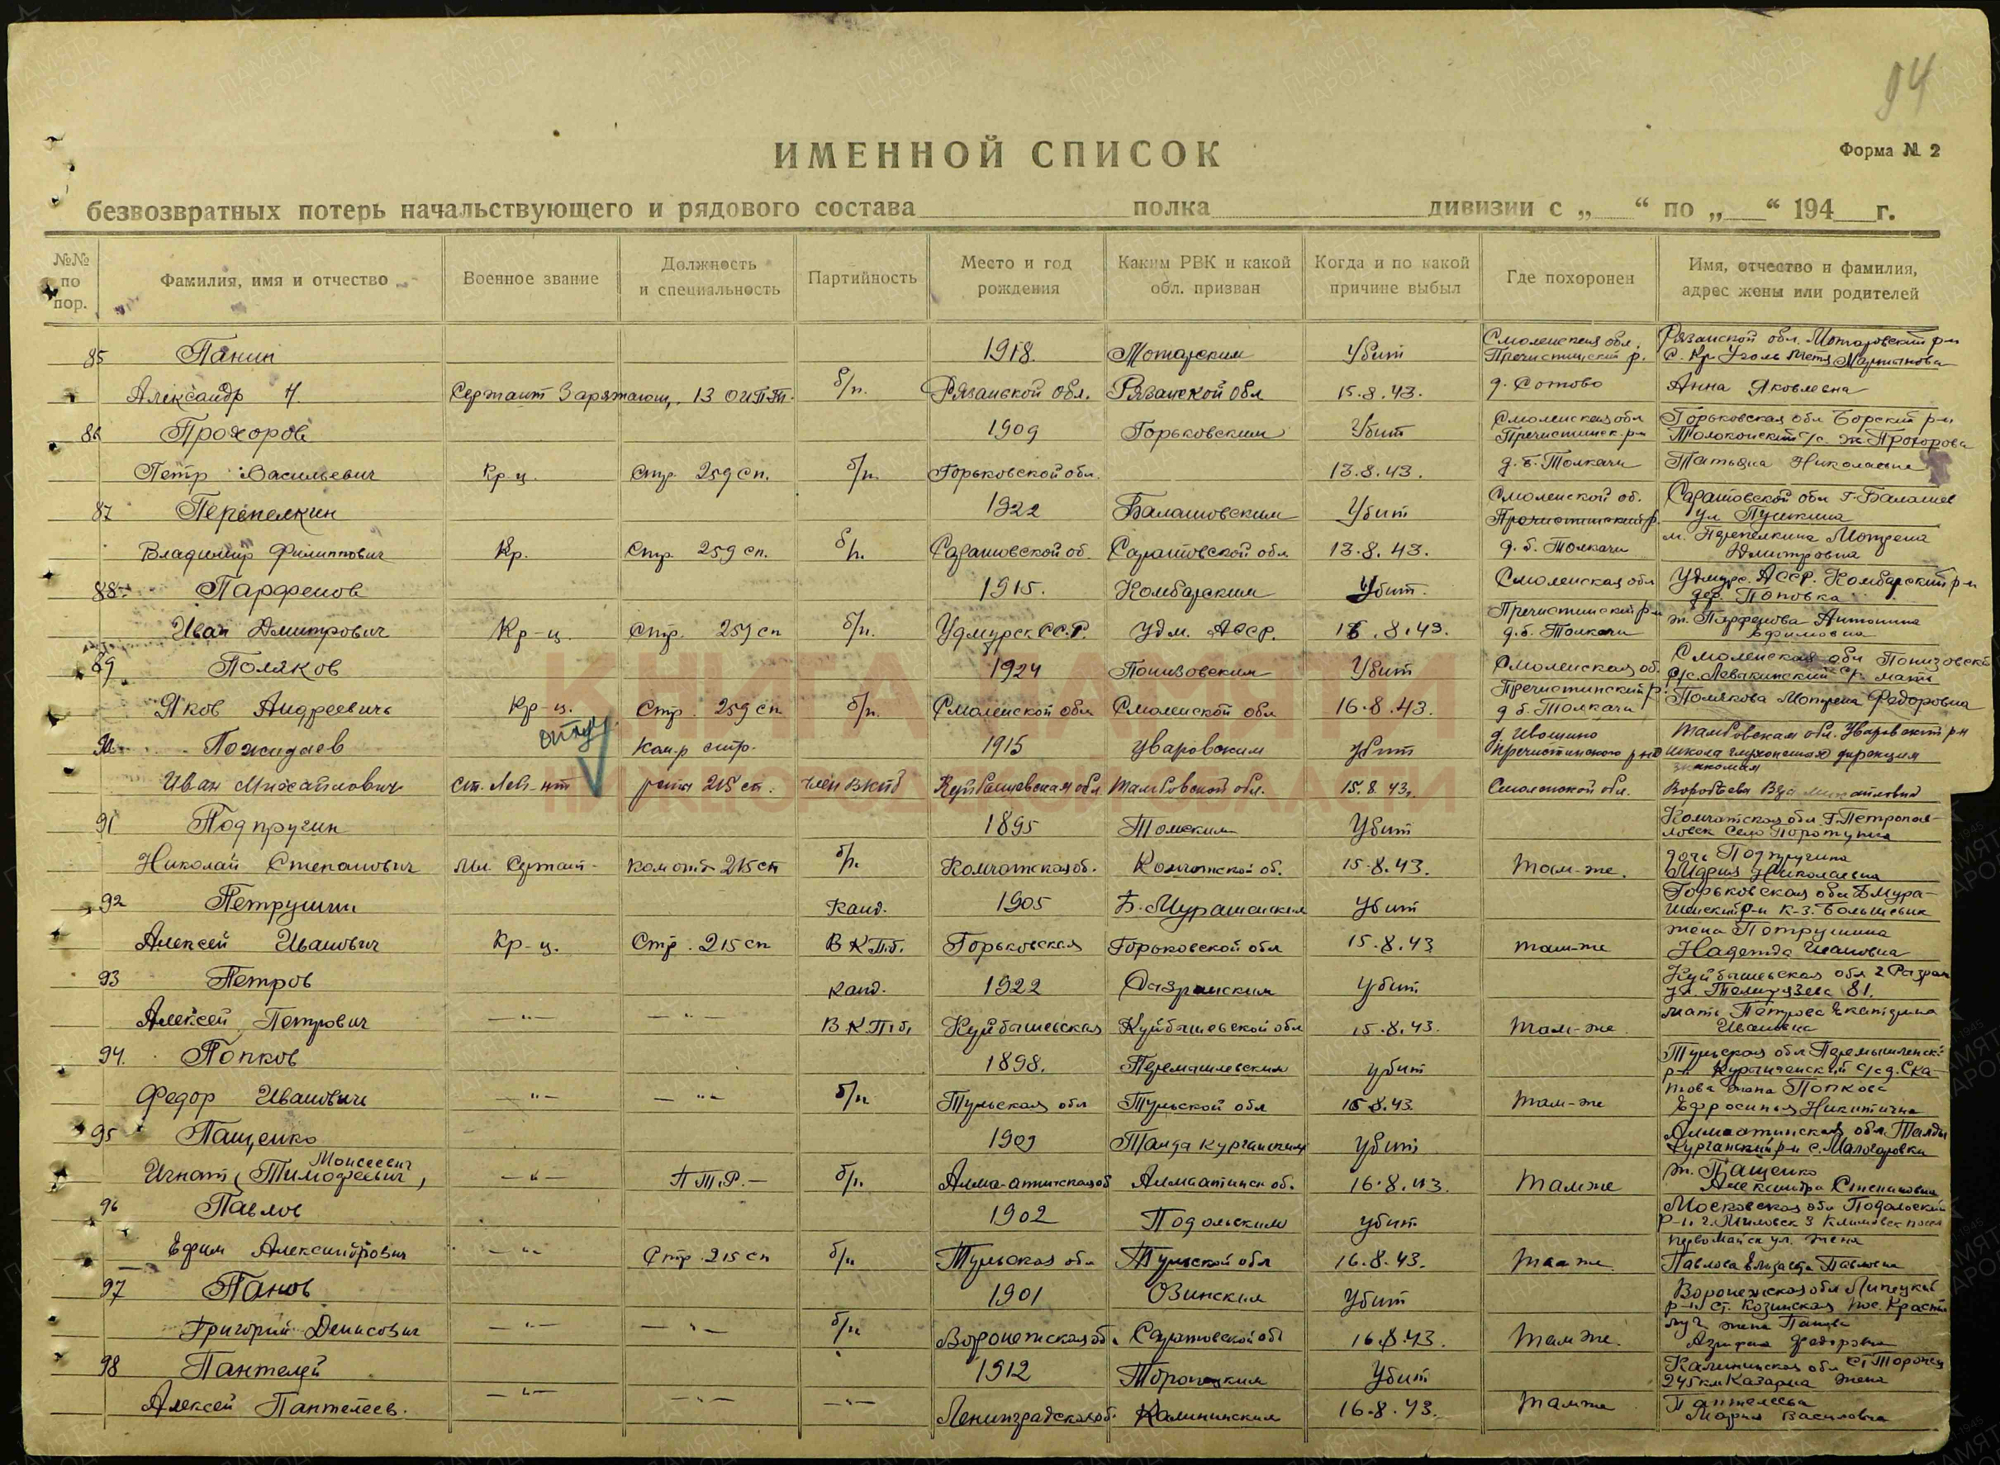 94
ИМЕННОЙ СПИСОК
Форма № 2
безвозвратных потерь начальствующего и рядового состава полка дивизии с „ “ по „ “ 194 г.
№№ по пор.
Фамилия, имя и отчество
Военное звание
Должность и специальность
Партийность
Место и год рождения
Каким РВК и какой обл. призван
Когда и по какой причине выбыл
Где похоронен
Имя, отчество и фамилия, адрес жены или родителей
85 Панин 1918. Можарским Убит Смоленская обл. Пречистинский р. Рязанской обл. Можаровский р-н
Александр И. Сержант Заряжающ. 13 ОИПТД б/п. Рязанской Обл. Рязанской Обл 15.8.43. д. Сотово Анна Яковлевна
86 Прохоров 1909 Горьковским Убит Смоленская обл Пречистинск. р-н Горьковская обл Борский р-н
Петр Васильевич Кр-ц. Стр. 259 сп. б/п. Горьковской обл. 13.8.43. д. б. Толкачи Татьяна Николаевна
87 Перепелкин 1922 Балашовским Убит Смоленской об. Пречистинский р. Саратовской обл г. Балашов ул Пушкина
Владимир Филиппович Кр. Стр. 259 сп. б/п. Саратовской об. Саратовской обл 13.8.43. д. б. Толкачи м. Перепелкина Мотрена Дмитровна
88 Парфенов 1915. Камбарским Убит. Смоленская обл Удмурс. АССР. Камбарский р-н дер. Поповка
Иван Дмитрович Кр-ц. Стр. 259 сп б/п. Удмурск ССР. Удм. АССР. 16.8.43. Пречистинский р-н д. б. Толкачи ж. Парфенова Антонина Ефимовна
89 Поляков 1924 Понизовским Убит Смоленская об. Смоленская обл Понизовский с/с. Левакинский мать
Яков Андреевич Кр-ц. Стр. 259 сп б/п. Смоленской обл Смоленской обл 16.8.43. Пречистинский р. д. б. Толкачи Полякова Мотрена Федоровна
90 Пожидаев Ком-р стр. 1915 Уваровским убит д. Ивошино Пречистинского р-на Тамбовская обл. Уваровский р-н школа глухонемых
Иван Михайлович Ст. Лей-нт роты 215 сп. член ВКПб Куйбышевская обл. Тамбовской обл. 15.8.43. Смоленской обл.
91 Подпругин 1895 Томским Убит Камчатская обл. г. Петропавловск Село
Николай Степанович Мл. Сержант Ком отд 215 сп б/п. Камчатская об. Камчатской об. 15.8.43. Там-же. дочь Подпругина Мария Николаевна
92 Петрушин Канд. 1905 Б-Мурашкинским Убит Горьковская обл Б Мурашкинский р-н к-з. Большевик
Алексей Иванович Кр-ц. Стр. 215 сп ВКПб. Горьковская Горьковской обл 15.8.43 там-же жена Петрушина Надежда Ивановна
93 Петров канд. 1922 Убит Куйбышевская обл ул. Темирязева 81.
Алексей Петрович —"— —"— ВКПб. Куйбышевская Куйбышевской обл 15.8.43. Там-же. мать Петрова Екатерина Ивановна
94. Попков 1898. Перемышлевским убит Тульская обл Перемышленск. р-н
Федор Иванович —"— —"— б/п Тульская обл Тульской обл 15.8.43. Там-же жена Попкова Ефросинья Никитична
95 Пащенко 1909 Талды курганским убит Алмаатинская обл. Талды Курганский р-н
Игнат (Тимофеевич) Моисеевич —"— ПТР.— б/п. Алма-атинская об Алмаатинск об. 16.8.43. Тамже ж. Пащенко Александра Степановна
96 Павлов 1902 Подольским убит Московская обл Подольский р-н
Ефим Александрович —"— Стр. 215 сп б/п Тульская обл Тульской обл 16.8.43. Тамже. Первомайск ул. жена Павлова Елизавета Павловна
97 Панов 1901 Озинским Убит Воронежская обл Липецкий р-н ст. Козинская
Григорий Денисович —"— —"— б/п Воронежская об. Саратовской об 16.8.43. Тамже. жена Панова Федоровна
98 Пантелей 1912 Торопецким Убит Калининская обл ст Торопец 245 км Казарма жена
Алексей Пантелеев. —"— —"— —"— Ленинградская об. Калининским 16.8.43. Тамже Пантелеева Мария Васильевна